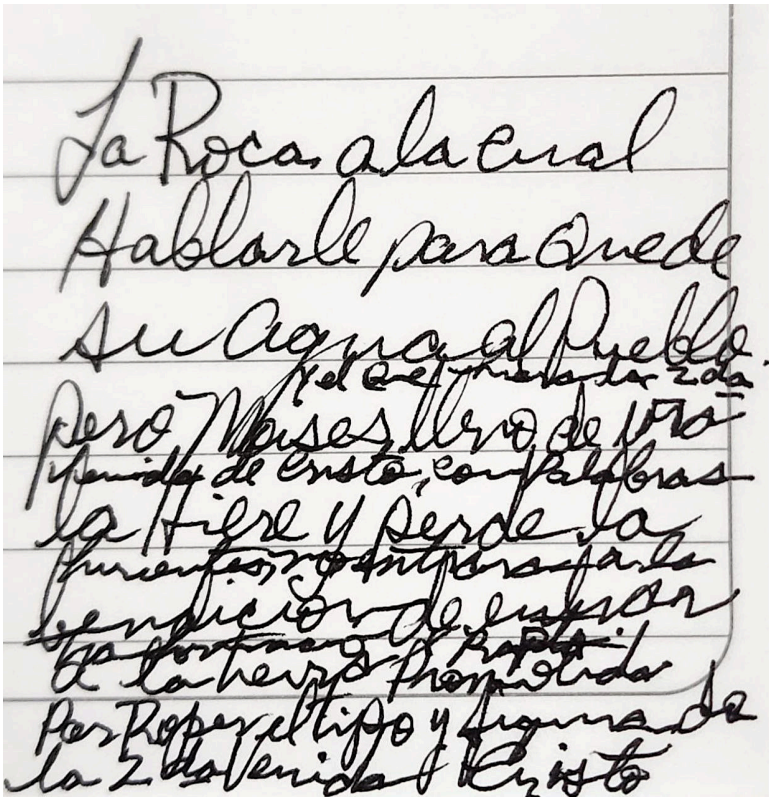 La Roca a la cual
Hablarle para que de
su Agua al Pueblo.
y el que hiera la 2da
pero Moises lleno de ira
Venida de Cristo, con Palabras
la Hiere y pierde la
hirientes, no entrara a la
bendición de entrar
a la tierra Prometida
Por Romper el tipo y figura de
la 2da Venida Cristo